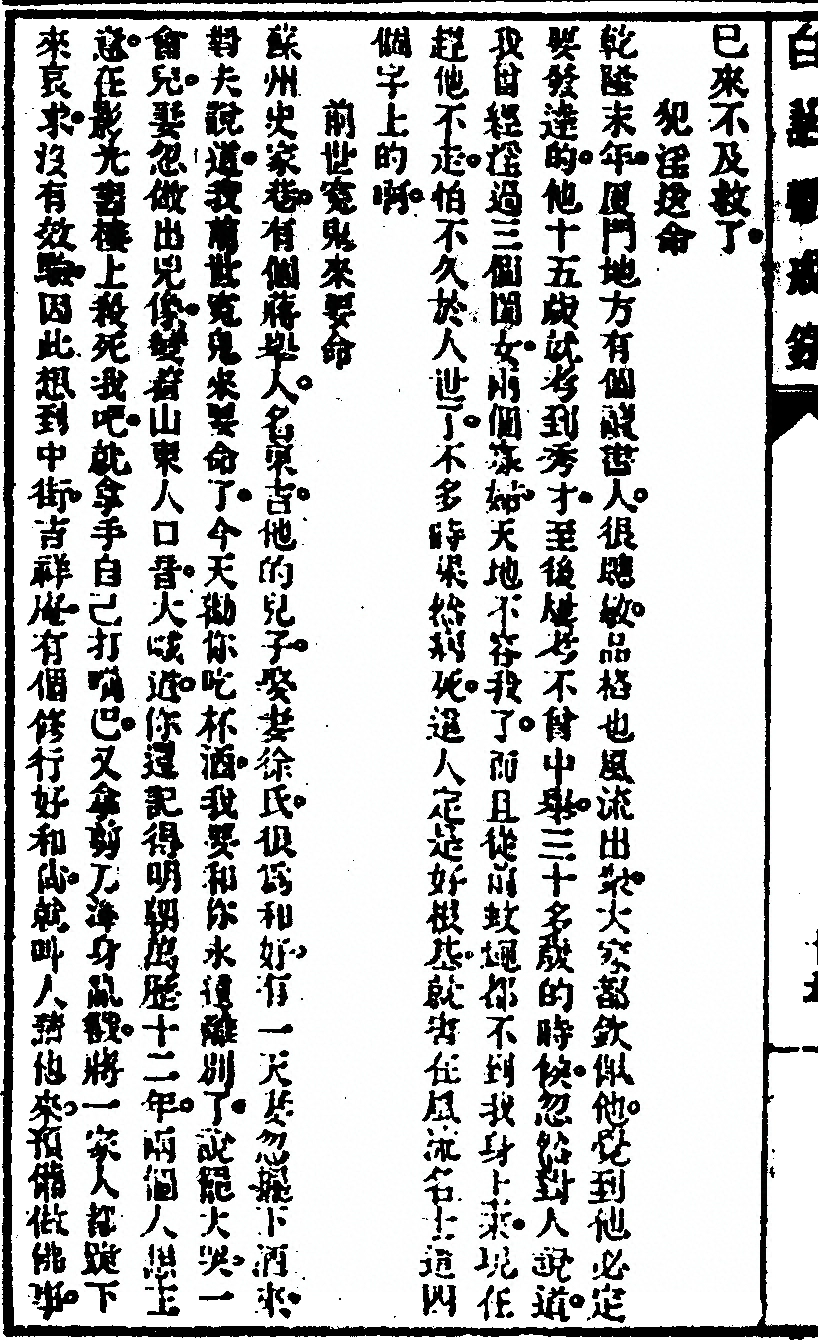 白話戒錄
已來不及救了。
犯淫送命
乾隆末年。厦門地方有個讀書人。很聰敏。品格也風流出衆。大家都欽佩他。覺到他必定
要發達的。他十五歲就考到秀才。至後屢考不曾中舉。三十多歲的時候。忽然對人說道。
我曾經淫過三個閨女。兩個寡婦。天地不容我了。而且從前蚊蠅都不到我身上來。現在
趕他不走。怕不久於人世了。不多時果然病死。這人定是好根基。就害在風流名士這四
個字上的啊。
前世寃鬼來要命
蘇州史家巷。有個蔣舉人。名東吉。他的兒子。娶妻徐氏。很爲和好。有一天妻忽擺下酒來。
對夫說道。我前世寃鬼來要命了。今天勸你吃杯酒。我要和你永遠離別了。說罷大哭。一
會兒。娶忽做出兇像。變着山東人口音。大喊道。你還記得明朝萬歷十二年。兩個人想主
意。在影光書樓上殺死我吧。就拿手自己打嘴巴。又拿剪刀渾身亂戳。將一家人都跪下
來哀求。沒有效驗。因此想到中街。吉祥庵。有個修行好和尙。就叫人請他來。預備做佛事。